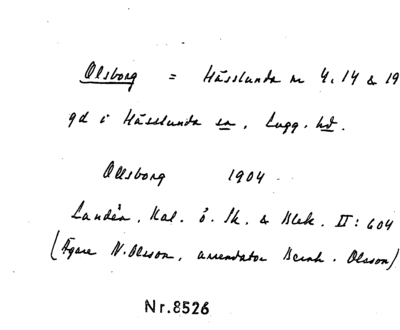 Olsborg = Hässlunda nr 4, 14 & 19
gd i Hässlunda sn, Lugg. hd.
Ollsborg 1904
Landén, Kal. ö. Sk. & Blek. II: 604
(Ägare N. Olsson, arrendator Bernh. Olsson)
Nr. 8526